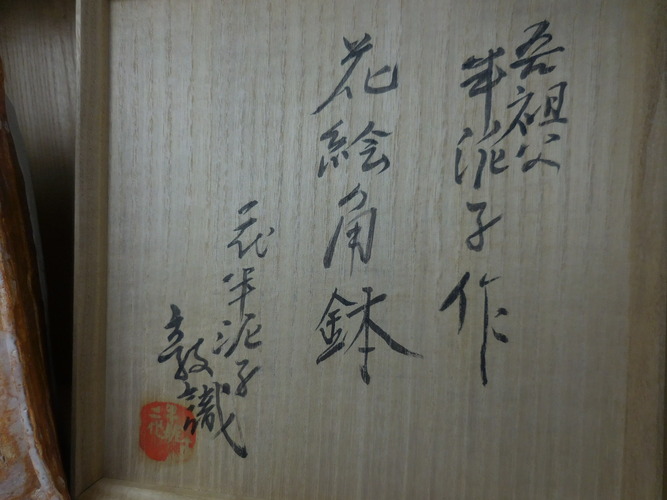 吾祖父
半泥子作
花絵角鉢
二代半泥子
敦識